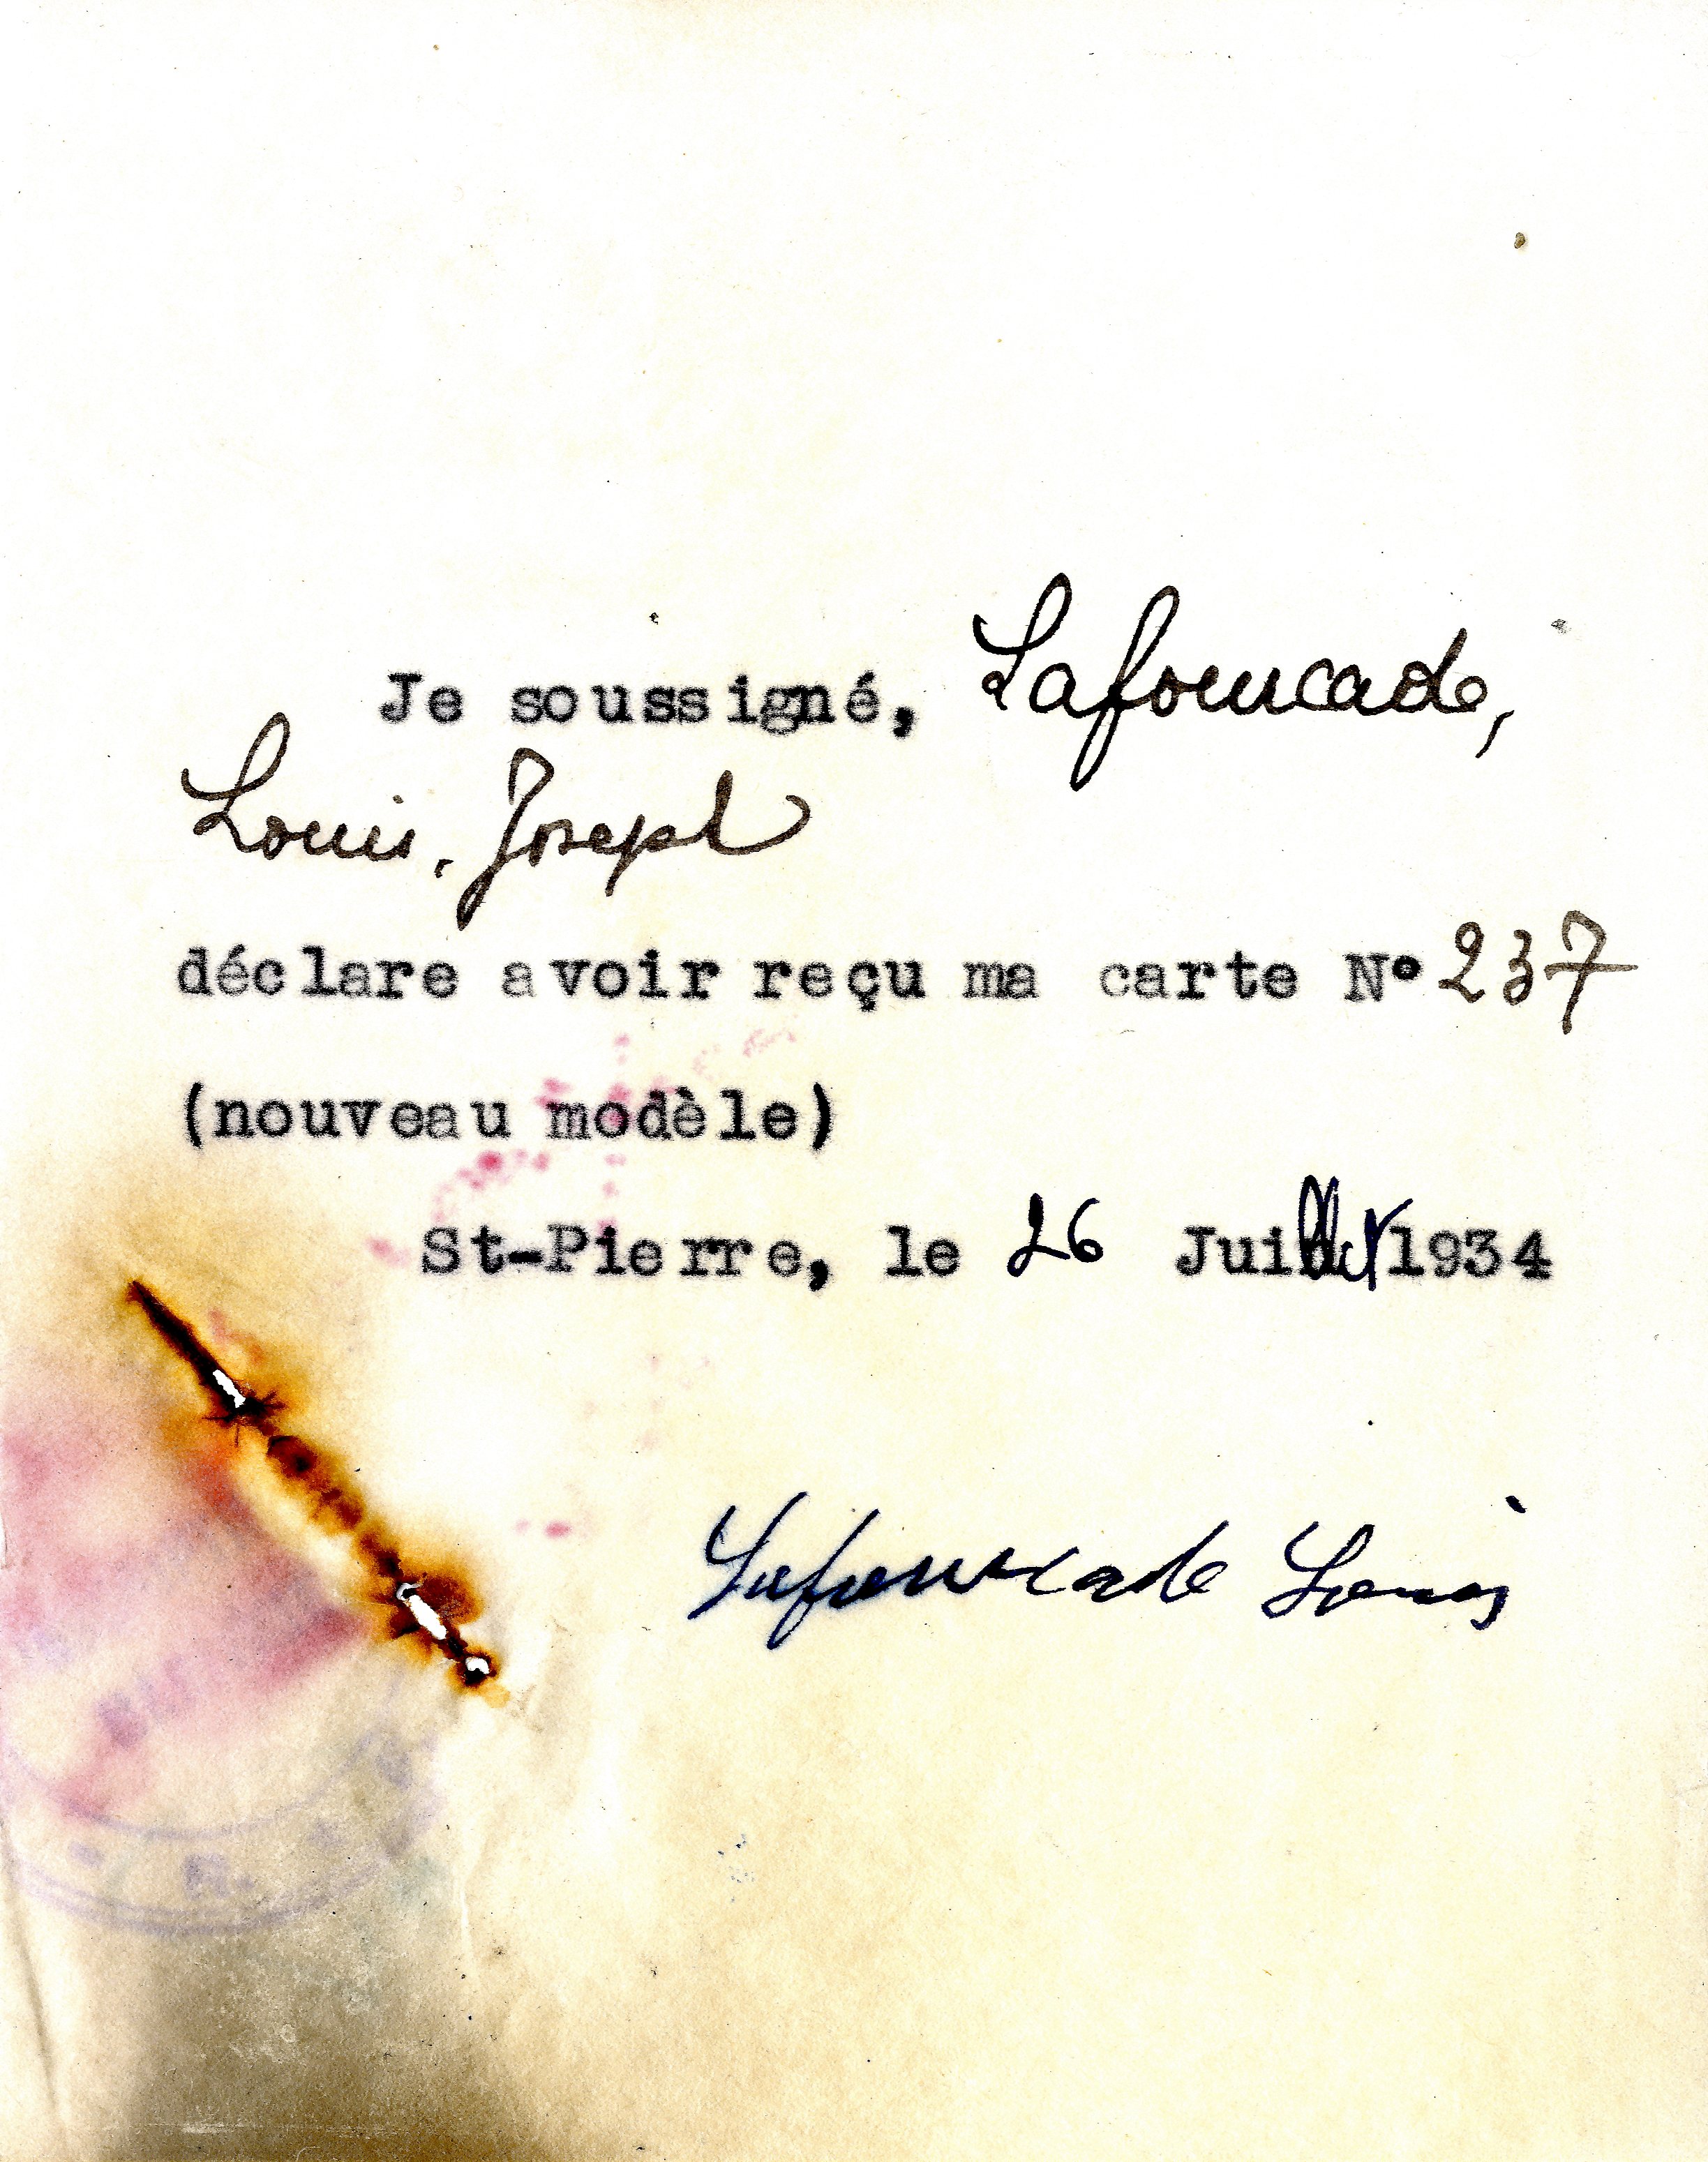 Je soussigné, Lafourcade,
Louis, Joseph
déclare avoir reçu ma carte N° 237
(nouveau modèle)
St-Pierre, le 26 Juillet 1934
Lafourcade Louis